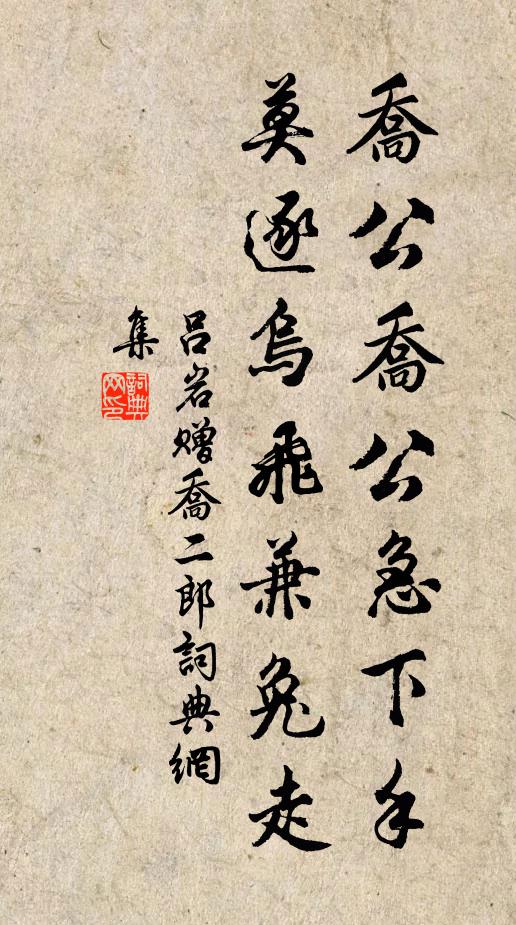 喬公喬公急下手
莫逐烏飛兼兔走
吕岩贈喬二郎詞典網
集
詞典
网印